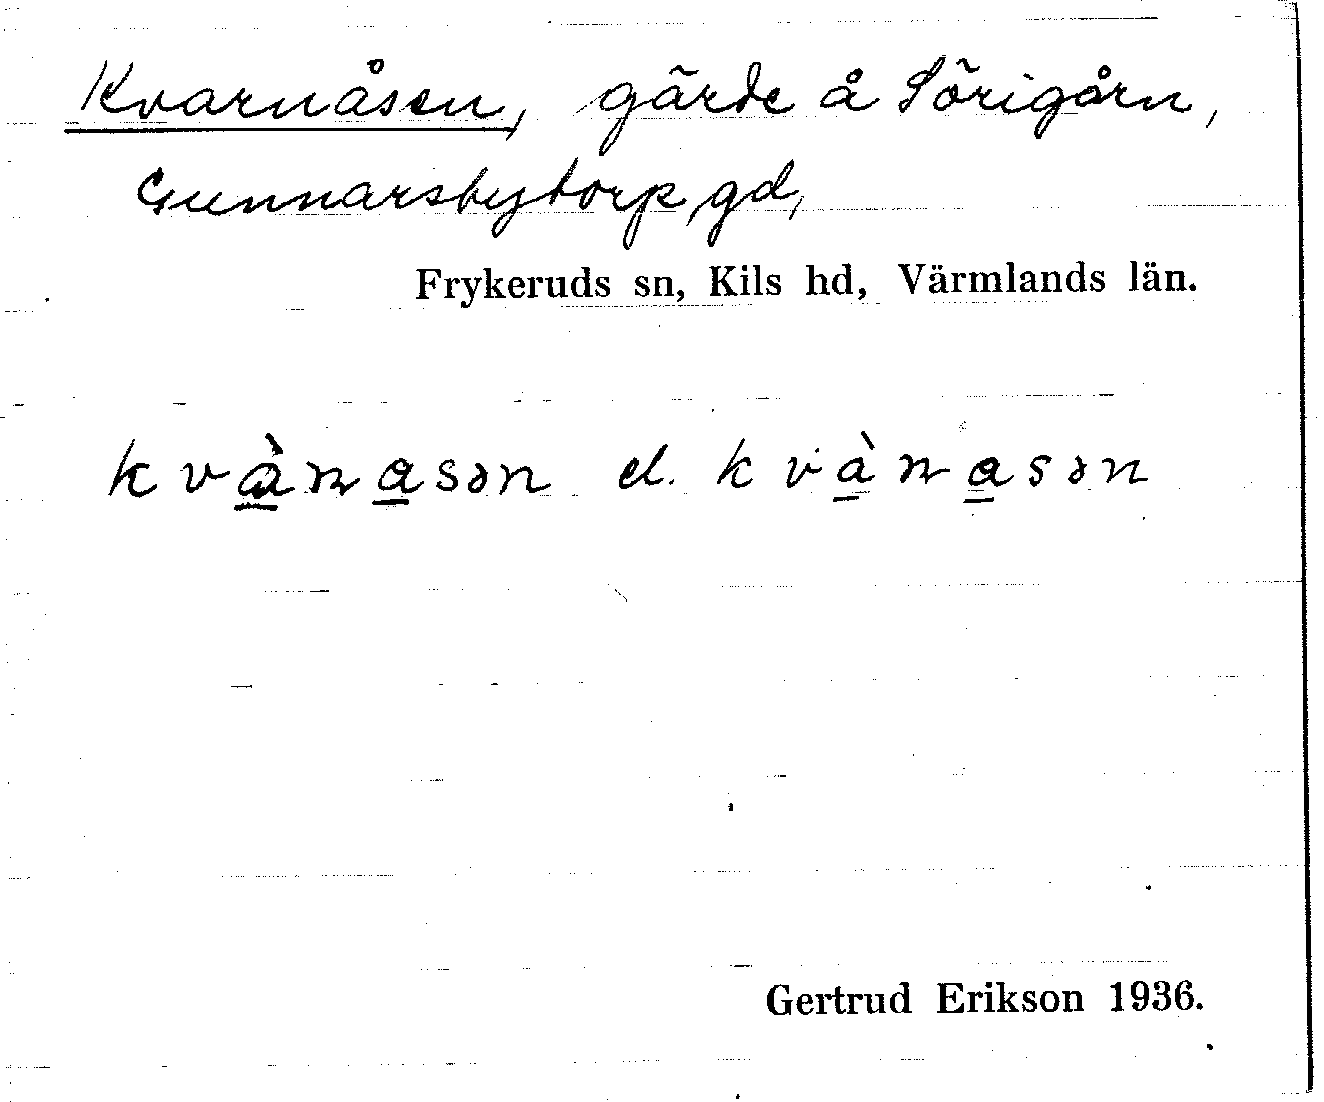 Kvarnåsen, gärde å Sörigårn,
Gunnarsbytorp, gd,
Frykeruds sn, Kils hd, Värmlands län.
kvànasən el. kvànasən
Gertrud Erikson 1936.